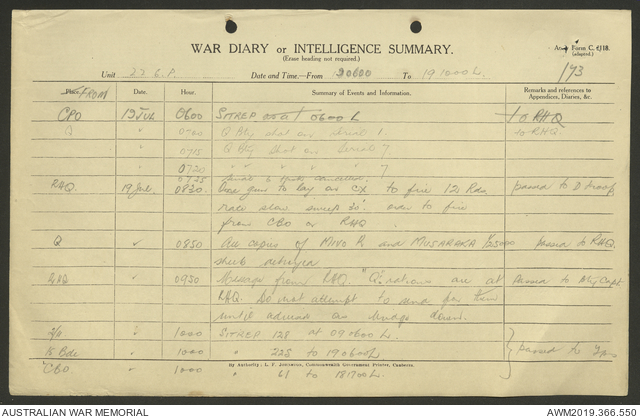 WAR DIARY or INTELLIGENCE SUMMARY.
(Erase heading not required.)
Army Form C. 2118.
(adapted.)
193
Unit
Date and Time—From 190600 To 191000L.
Place FROM Date. Hour. Summary of Events and Information. Remarks and references to Appendices, Diaries, &c.
CPO 19 Jul 0600 SITREP at 0600 L to RHQ
Q " 0700 Q Bty shot on Serial 1 to RHQ
" 0715 Q Bty shot on Serial 7
" 0720 " " " " 7
" 0725
RHQ. 19 Jul. 0830. One gun to lay on to fire 12 Rds passed to D troop
rate slow sweep 30'. order to fire
from CBO or RHQ
Q " 0850 All copies of MIVO R. and MUSARAKA 1/25000 passed to RHQ.
sheet
RHQ " 0950 Message from RHQ "Q rations are at passed to Bty Capt
RHQ. Do not attempt to send for them
until advised as bridge down.
1000 SITREP 128 at 090600L.
15 Bde " 1000 " 228 to 190600L. passed to
CBO " 1000 " 61 to 181700L.
By Authority: L. F. Johnston, Commonwealth Government Printer, Canberra.
AUSTRALIAN WAR MEMORIAL AWM2019.366.550